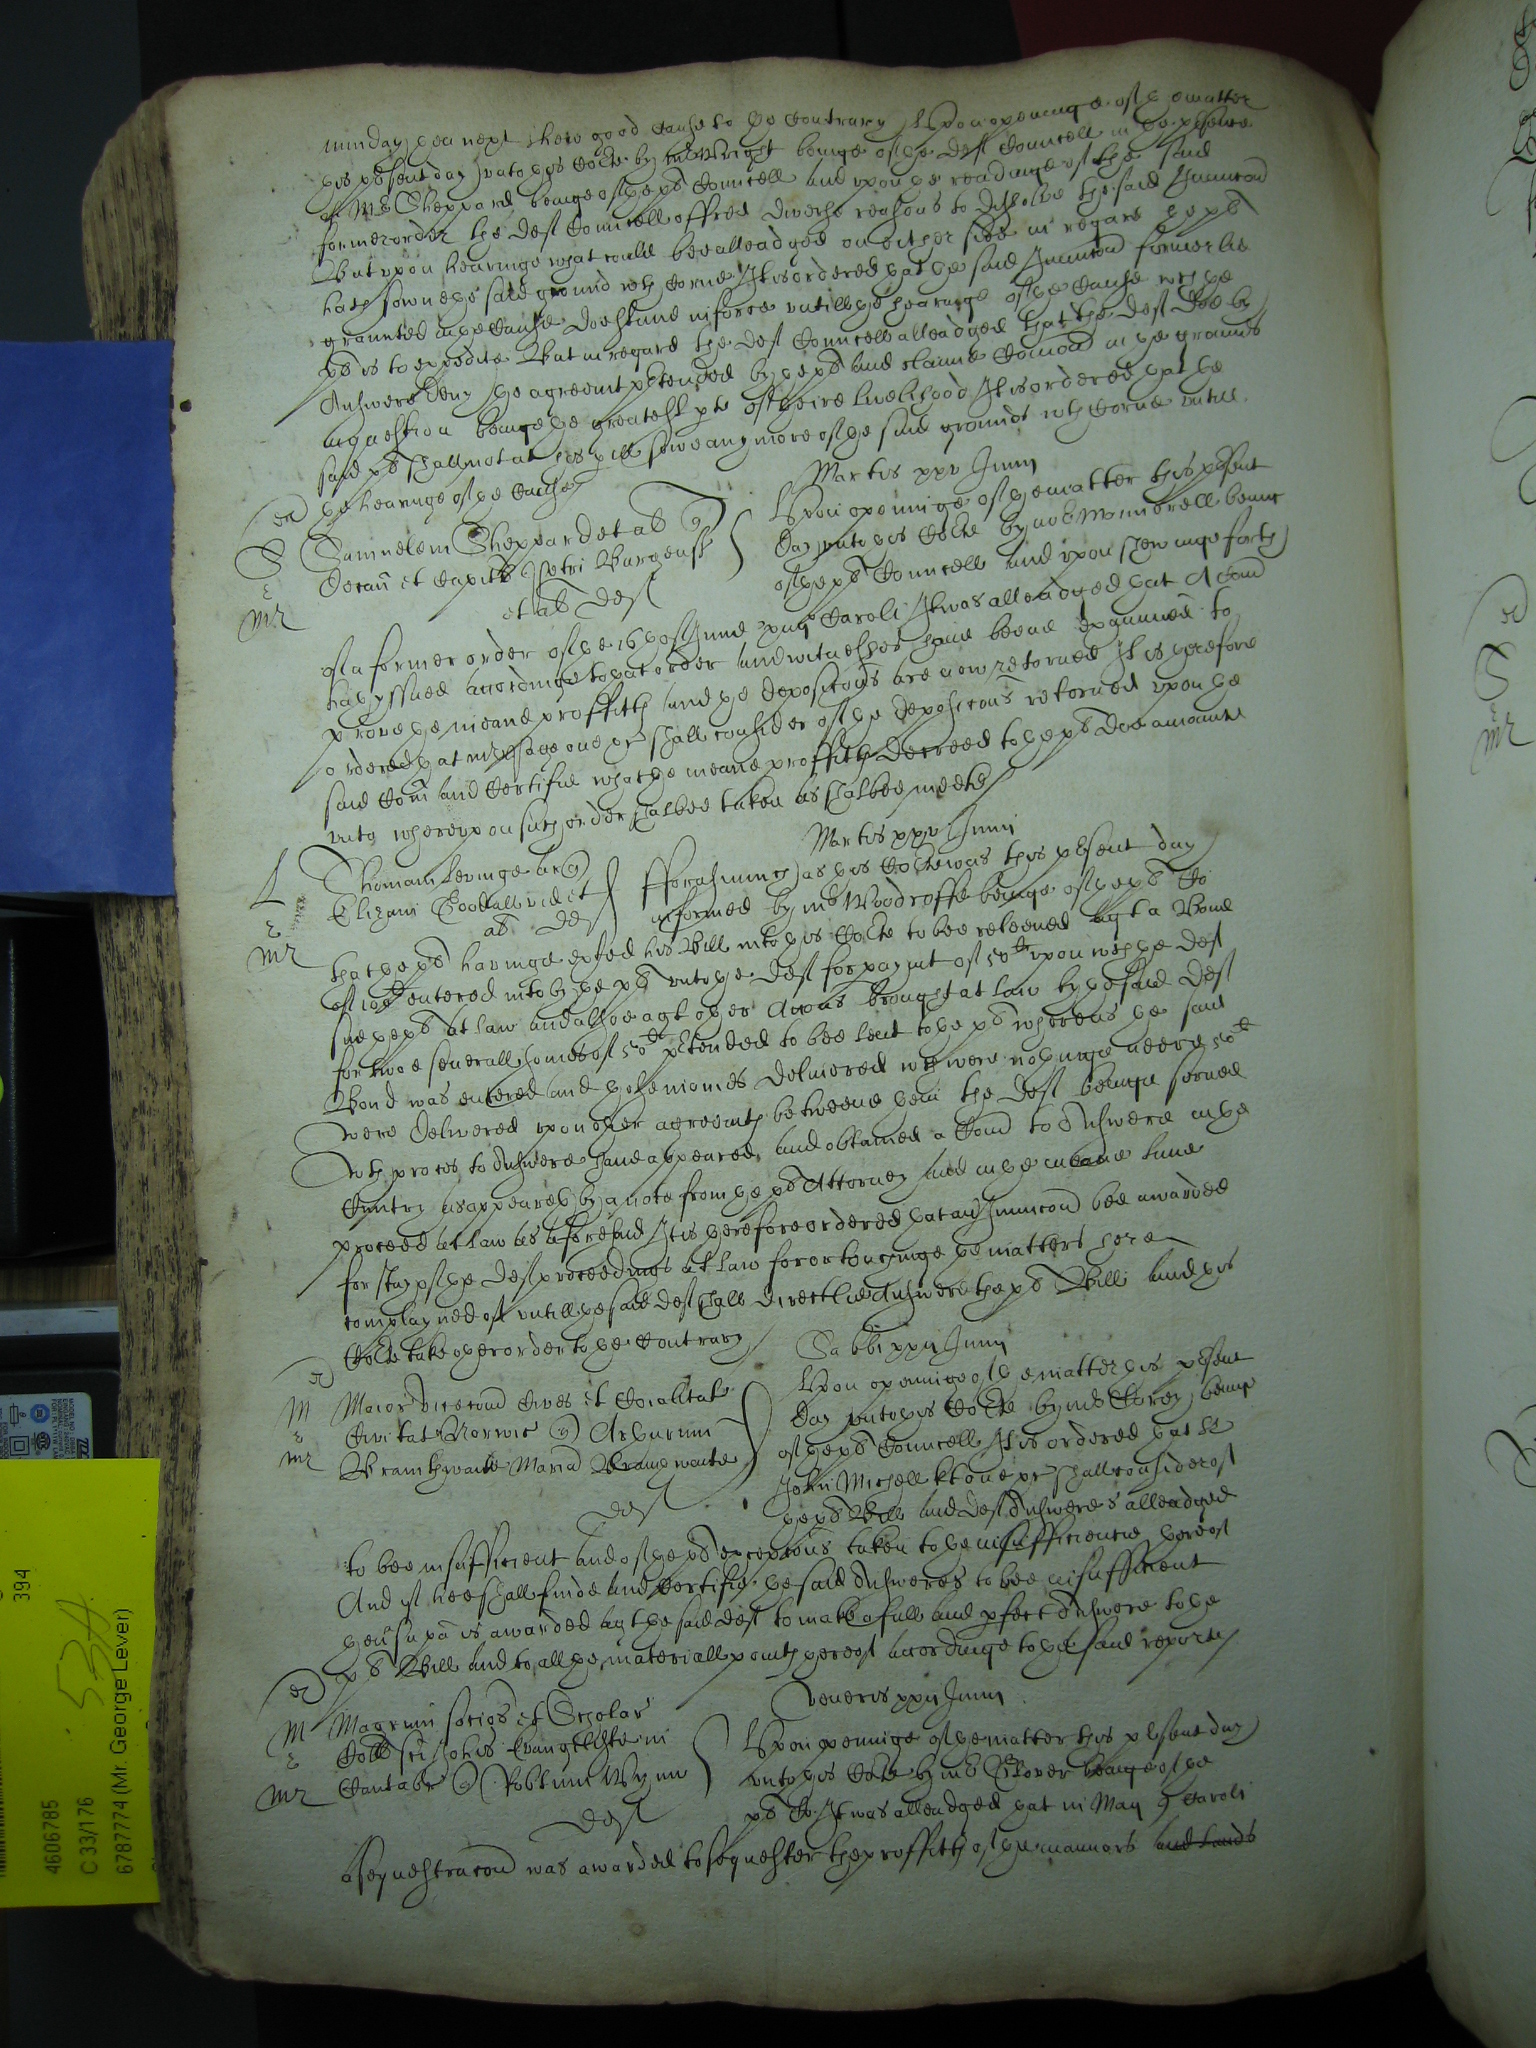 munday then next shew good cause to the contrary Upon openinge of the matter
this p̱sent day vnto this Co:te by mr Wright beinge of the defts Councell in the p̱sence
of Mr Sheppard beinge of the pls Councell and vpon the readinge of the said
former order the defts Councell offred diverse reasons to dissolve the said Iniunccon
But vpon hearinge what could bee alleadged on either side in regard the pl
hath sowne the said ground wth Corne It is ordered that the said Iniunccon formerlie
graunted in the Cause doe stand in force vntill the hearinge of the Cause wch the
pl is to expedite But in regard the defts Councell alleadged that the defts doe by
Answere deny the agreemt p̱tended by the pl and claime Comon in the grounds
in question beinge the greatest p̱te of theire livelihood It is ordered that the
said pl shall not at his p̱ill sowe any more of the said grounds wth Corne vntill
the hearinge of the Cause
Martis xxv Junii
Samuelem Sheppard et al q̱
Decan et Capitl Petri Burgens
et al Deft
Upon openinge of the matter this p̱sent
day vnto this Co:te by
of the pls Councell and vpon shewinge forth
of a former order of the 16th of June Caroli It was alleadged that a Com̄
hath yssued accordinge to that order and witnesses have beene examined to
prove the meane proffitts and the deposicons are now retorned It is therefore
ordered that mr Page one &c shall consider of the deposicons retorned vpon the
said Com̄ and certifie what the meane proffitts decreed to the pl doe amount
vnto whereupon such order shalbee taken as shalbee meete
Martis xxv Junii
Thomam Levinge ar q̱
Elizam Goodall vid et
al Deft
fforasmuch as this Co:te was this p̱sent day
informed by mr Woodroffe beinge of the pls Co:
that the pl havinge exhited his Bill into this Co:te to bee releeved agt a Bond
of 100li entered into by the pl vnto the deft for paymt of 50li vpon wch the deft
sue the pl at law and allsoe agt other Accons brought at law by the said deft
for twoe severall somes of 50li p̱tended to bee lent to the pl whereas the said
Bond was entered and the monies delivered wch were nothinge neere 50li
were delivered vpon other agreemts betweene them the deft beinge served
wth proces to Answere have appeared and obtained a Com̄ to Answere in the
Cuntry as appeareth by a note from the pls Attorney and in the meane time
proceed at law as aforesaid It is therefore ordered that an Iniunccon bee awarded
for stay of the defts proceedings at law for or touchinge the matters here
complayned of vntill the said deft shall directlie Answere the pls Bill and this
Co:te take other order to the Contrary
Sabbi xxii Junii
Maior vicecom Cives et Coialitat
Civitat Norwic q̱ Arthurum
Branthwaite Maria Branthwaite
Deft
Upon openinge of the matter this p̱sent
day vnto this Co:te by mr Corey beinge
of the pls Councell It is ordered that Sr
John Michell kt one &c shall consider of
the pls Bill and defts Answeres alleadged
to bee insufficient and of the pls excepcons taken to the insufficiencie thereof
And if hee shall finde and certifie the said Answeres to bee insufficient
then supa is awarded agt the said deft to make a full and p̱fect Answere to the
pls Bill and to all the materiall points thereof accordinge to the said reporte
Veneris xxii Junii
Magrum socios et Scholar
Coll sci Johis Evangeliste in
Cantabr q̱ Robtum Wynn
Deft
Upon openinge of the matter this p̱sent day
vnto this Co:te by mr Glover beinge of the
pls Co: It was alleadged that in May 9 Caroli
a Sequestracon was awarded to sequester the proffitts of the mannors and lands
394
534
4606785
C 33/176
6787774 (Mr. George Lever)